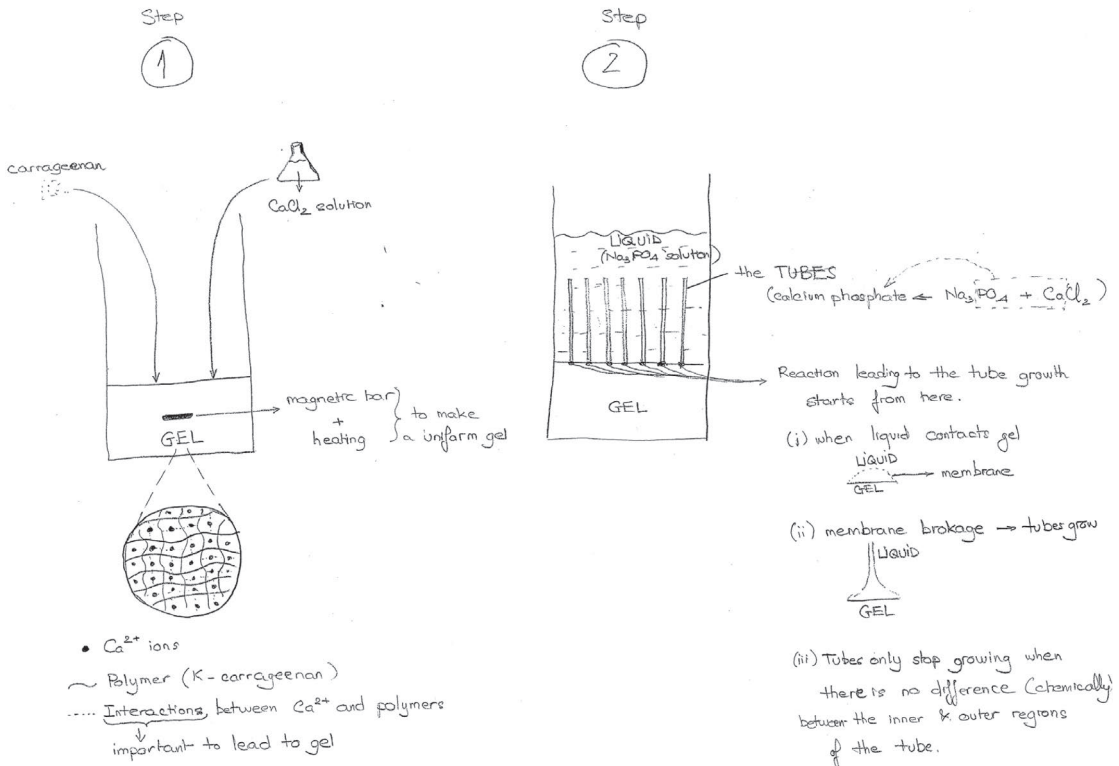 Step
1
carrageenan
CaCl₂ solution
magnetic bar
+
heating
to make
a uniform gel
GEL
• Ca²⁺ ions
~ Polymer (K-carrageenan)
..... Interactions, between Ca²⁺ and polymers
important to lead to gel
Step
2
LIQUID
(Na₃PO₄ solution)
the TUBES
(calcium phosphate ← Na₃PO₄ + CaCl₂)
Reaction leading to the tube growth
starts from here.
GEL
(i) when liquid contacts gel
LIQUID
→ membrane
GEL
(ii) membrane brokage → tubes grow
LIQUID
GEL
(iii) Tubes only stop growing when
there is no difference (chemically)
between the inner & outer regions
of the tube.